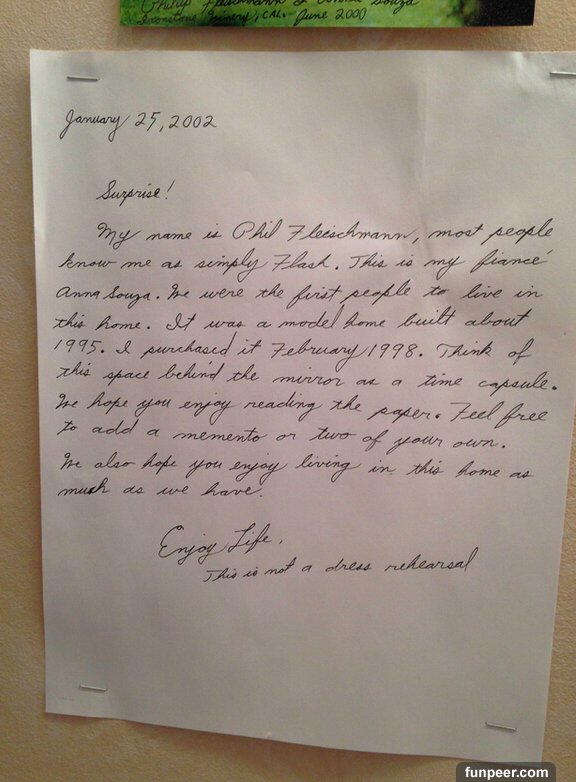 Philip Fleischmann & Anna Souza
Ironstone Winery, CAL. June 2000
January 25, 2002
Surprise!
My name is Phil Fleischmann, most people
know me as simply Flash. This is my fiancé
Anna Souza. We were the first people to live in
this home. It was a model home built about
1995. I purchased it February 1998. Think of
this space behind the mirror as a time capsule.
We hope you enjoy reading the paper. Feel free
to add a memento or two of your own.
We also hope you enjoy living in this home as
much as we have.
Enjoy Life,
This is not a dress rehearsal
funpeer.com